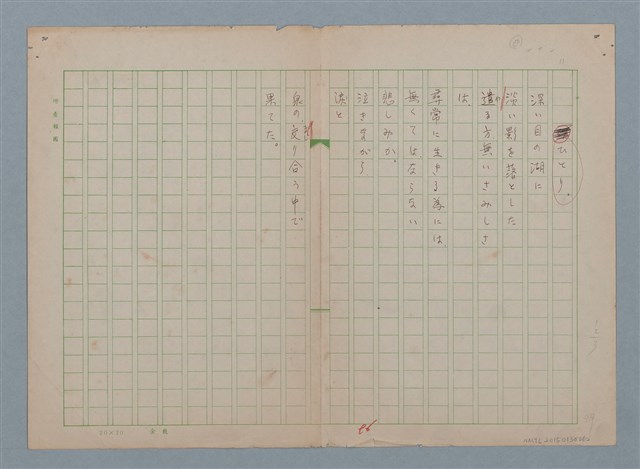 ひとり。
深い目の湖に
淡い影を落とした
遣る方無いさみしさ
は、
尋常に生きる為には、
無くてはならない
悲しみか。
泣きながら
涙と
泉の、交り合う中で
果てた。
20×20